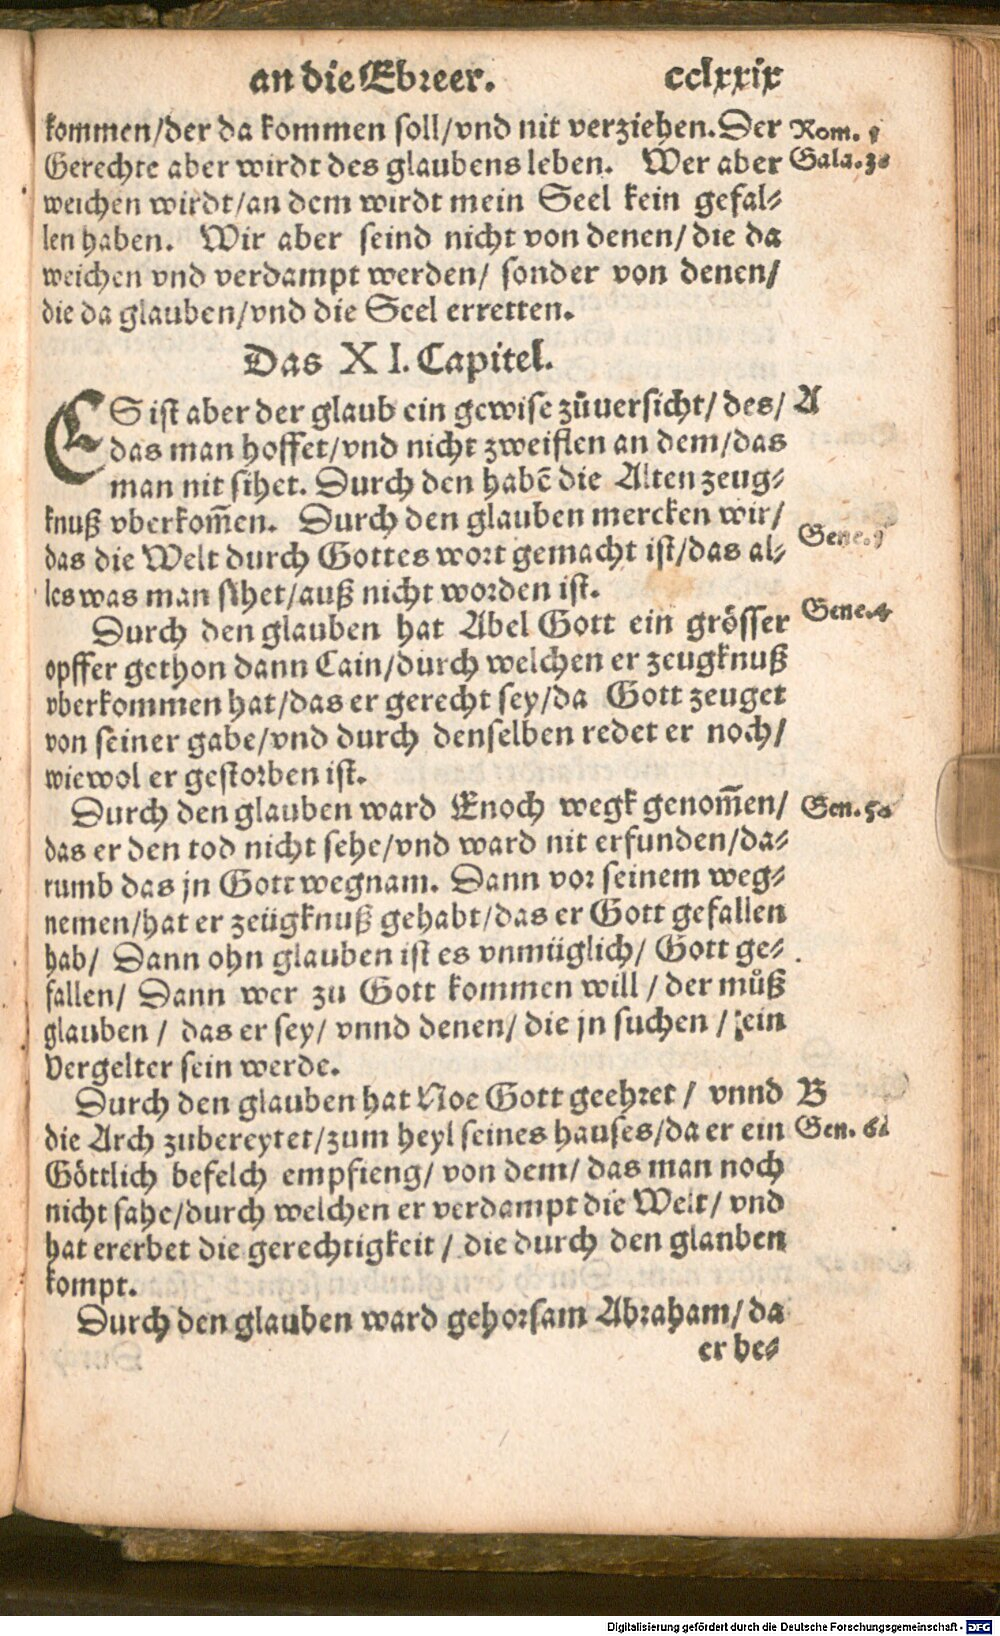 an die Ebreer. cclxxix
kommen/der da kommen soll/vnd nit verziehen. Der Rom. 1
Gerechte aber wirdt des glaubens leben. Wer aber Gala. 3.
weichen wirdt/an dem wirdt mein Seel kein gefal-
len haben. Wir aber seind nicht von denen/ die da
weichen vnd verdampt werden/ sonder von denen/
die da glauben/vnd die Seel erretten.
Das XI. Capitel.
ES ist aber der glaub ein gewise zůuersicht/ des/ A
das man hoffet/vnd nicht zweiflen an dem/das
man nit sihet. Durch den habē die Alten zeug-
knuß vberkom̄en. Durch den glauben mercken wir/
das die Welt durch Gottes wort gemacht ist/das al- Gene. 1
les was man sihet/auß nicht worden ist.
Durch den glauben hat Abel Gott ein grösser Gene. 4
opffer gethon dann Cain/durch welchen er zeugknuß
vberkommen hat/das er gerecht sey/da Gott zeuget
von seiner gabe/vnd durch denselben redet er noch/
wiewol er gestorben ist.
Durch den glauben ward Enoch wegk genom̄en/ Gen. 5.
das er den tod nicht sehe/vnd ward nit erfunden/da-
rumb das jn Gott wegnam. Dann vor seinem weg-
nemen/hat er zeügknuß gehabt/das er Gott gefallen
hab/ Dann ohn glauben ist es vnmüglich/ Gott ge-
fallen/ Dann wer zu Gott kommen will / der můß
glauben / das er sey/ vnnd denen/ die jn suchen / ein
Vergelter sein werde.
Durch den glauben hat Noe Gott geehret / vnnd B
die Arch zubereytet/zum heyl seines hauses/da er ein Gen. 6.
Göttlich befelch empfieng/ von dem/ das man noch
nicht sahe/durch welchen er verdampt die Welt/ vnd
hat ererbet die gerechtigkeit / die durch den glanben
kompt.
Durch den glauben ward gehorsam Abraham/ da
er be-
Digitalisierung gefördert durch die Deutsche Forschungsgemeinschaft - DFG